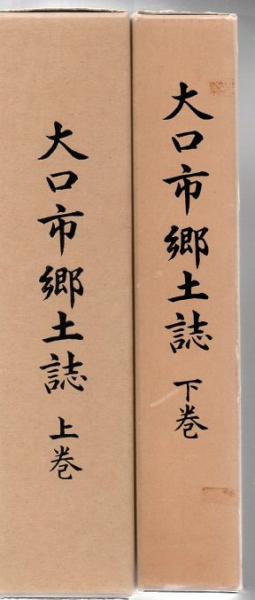 大口市郷土誌 上巻
大口市郷土誌 下巻